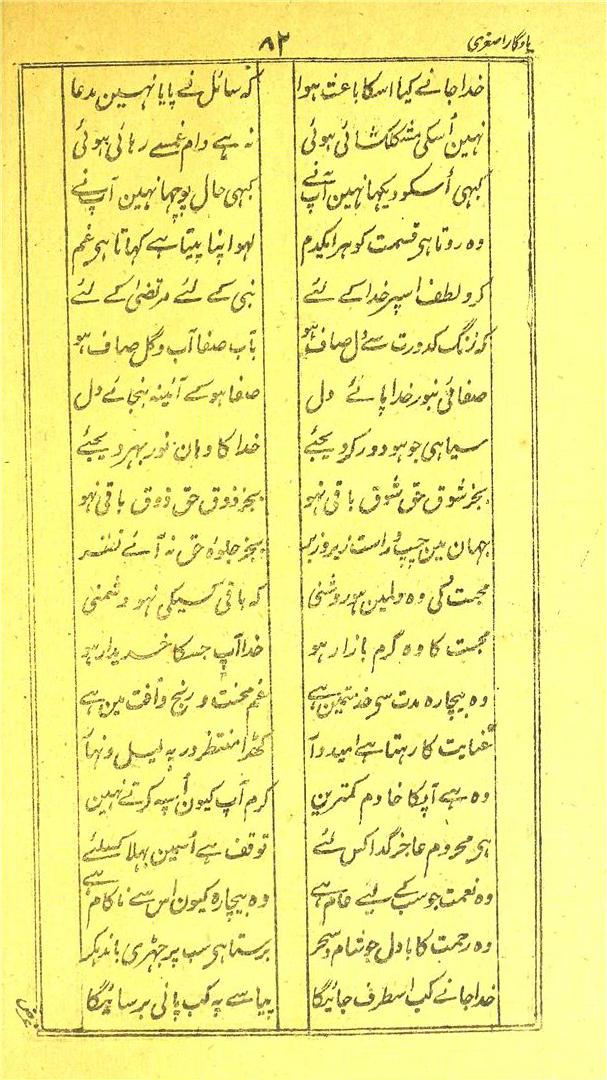 یادگار اصغری
۸۲
خدا جانے کیا اسکا باعث ہوا کہ سائل نے پایا نہین مدعا
نہین اُسکی مشکلکشائی ہوئی نہ ہے دام غمسے رہائی ہوئی
کبہی اُسکو دیکہا نہین آپ نے کبہی حال پوچہا نہین آپ نے
وہ روتا ہی قسمت کو ہر ایکدم لہو اپنا پیتا ہے کہاتا ہی غم
کرو لطف اسپر خدا کے لئے نبی کے لئے مرتضیٰ کے لئے
کہ زنگ کدورت سے دل صاف ہو بآب صفا آب و گل صاف ہو
صفائی بنور خدا پائے دل صفا ہو کے آئینہ بنجائے دل
سیاہی جو ہو دور کر دیجئے خدا کا وہان نور بہر دیجئے
بجز شوق حق شوق باقی نہو بجز ذوق حق ذوق باقی نہو
جہان مین چپ راست زیر و زبر بجز جلوہ حق نہ آئے نظر
محبت کی وہ دلمین ہو روشنی کہ باقی کسیکی نہو دشمنی
محبت کا وہ گرم بازار ہو خدا آپ جسکا خریدار ہو
وہ بیچارہ مدت سی خدمتمین ہے غم محنت و رنج و آفت مین ہے
عنایت کا رہتا ہے امیدوار کھڑا منتظر در پہ لیل و نہار
وہ ہے آپکا خادم کمترین کرم آپ کیون اُسپہ کرتے نہین
ہی محروم عاجز گدا کس لئے توقف ہے اُسمین بہلا کسلئے
وہ نعمت جو سب کے لیے عام ہے وہ بیچارہ کیون اس سے ناکام ہے
وہ رحمت کا بادل جو شام و سحر برستا ہی سب پر جہڑی باندہکر
خدا جانے کب اسطرف جائیگا پیاسے پہ کب پانی برسائیگا